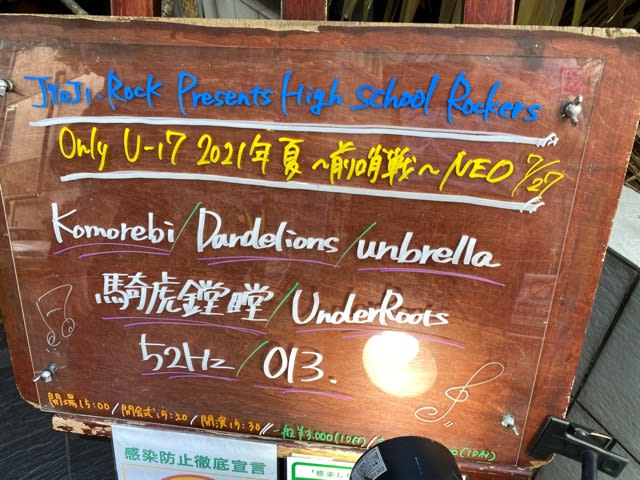 JYOJI-Rock Presents High School Rockers
Only U-17 2021年 夏 ~前哨戦~ NEO 7/27
Komorebi / Dandelions / unbrella
騎虎鏜瞠 / UnderRoots
52Hz / 013.
開場15:00 / 開会式15:20 / 開演15:30 // 一般¥3,000(1D付) /
感染防止徹底宣言